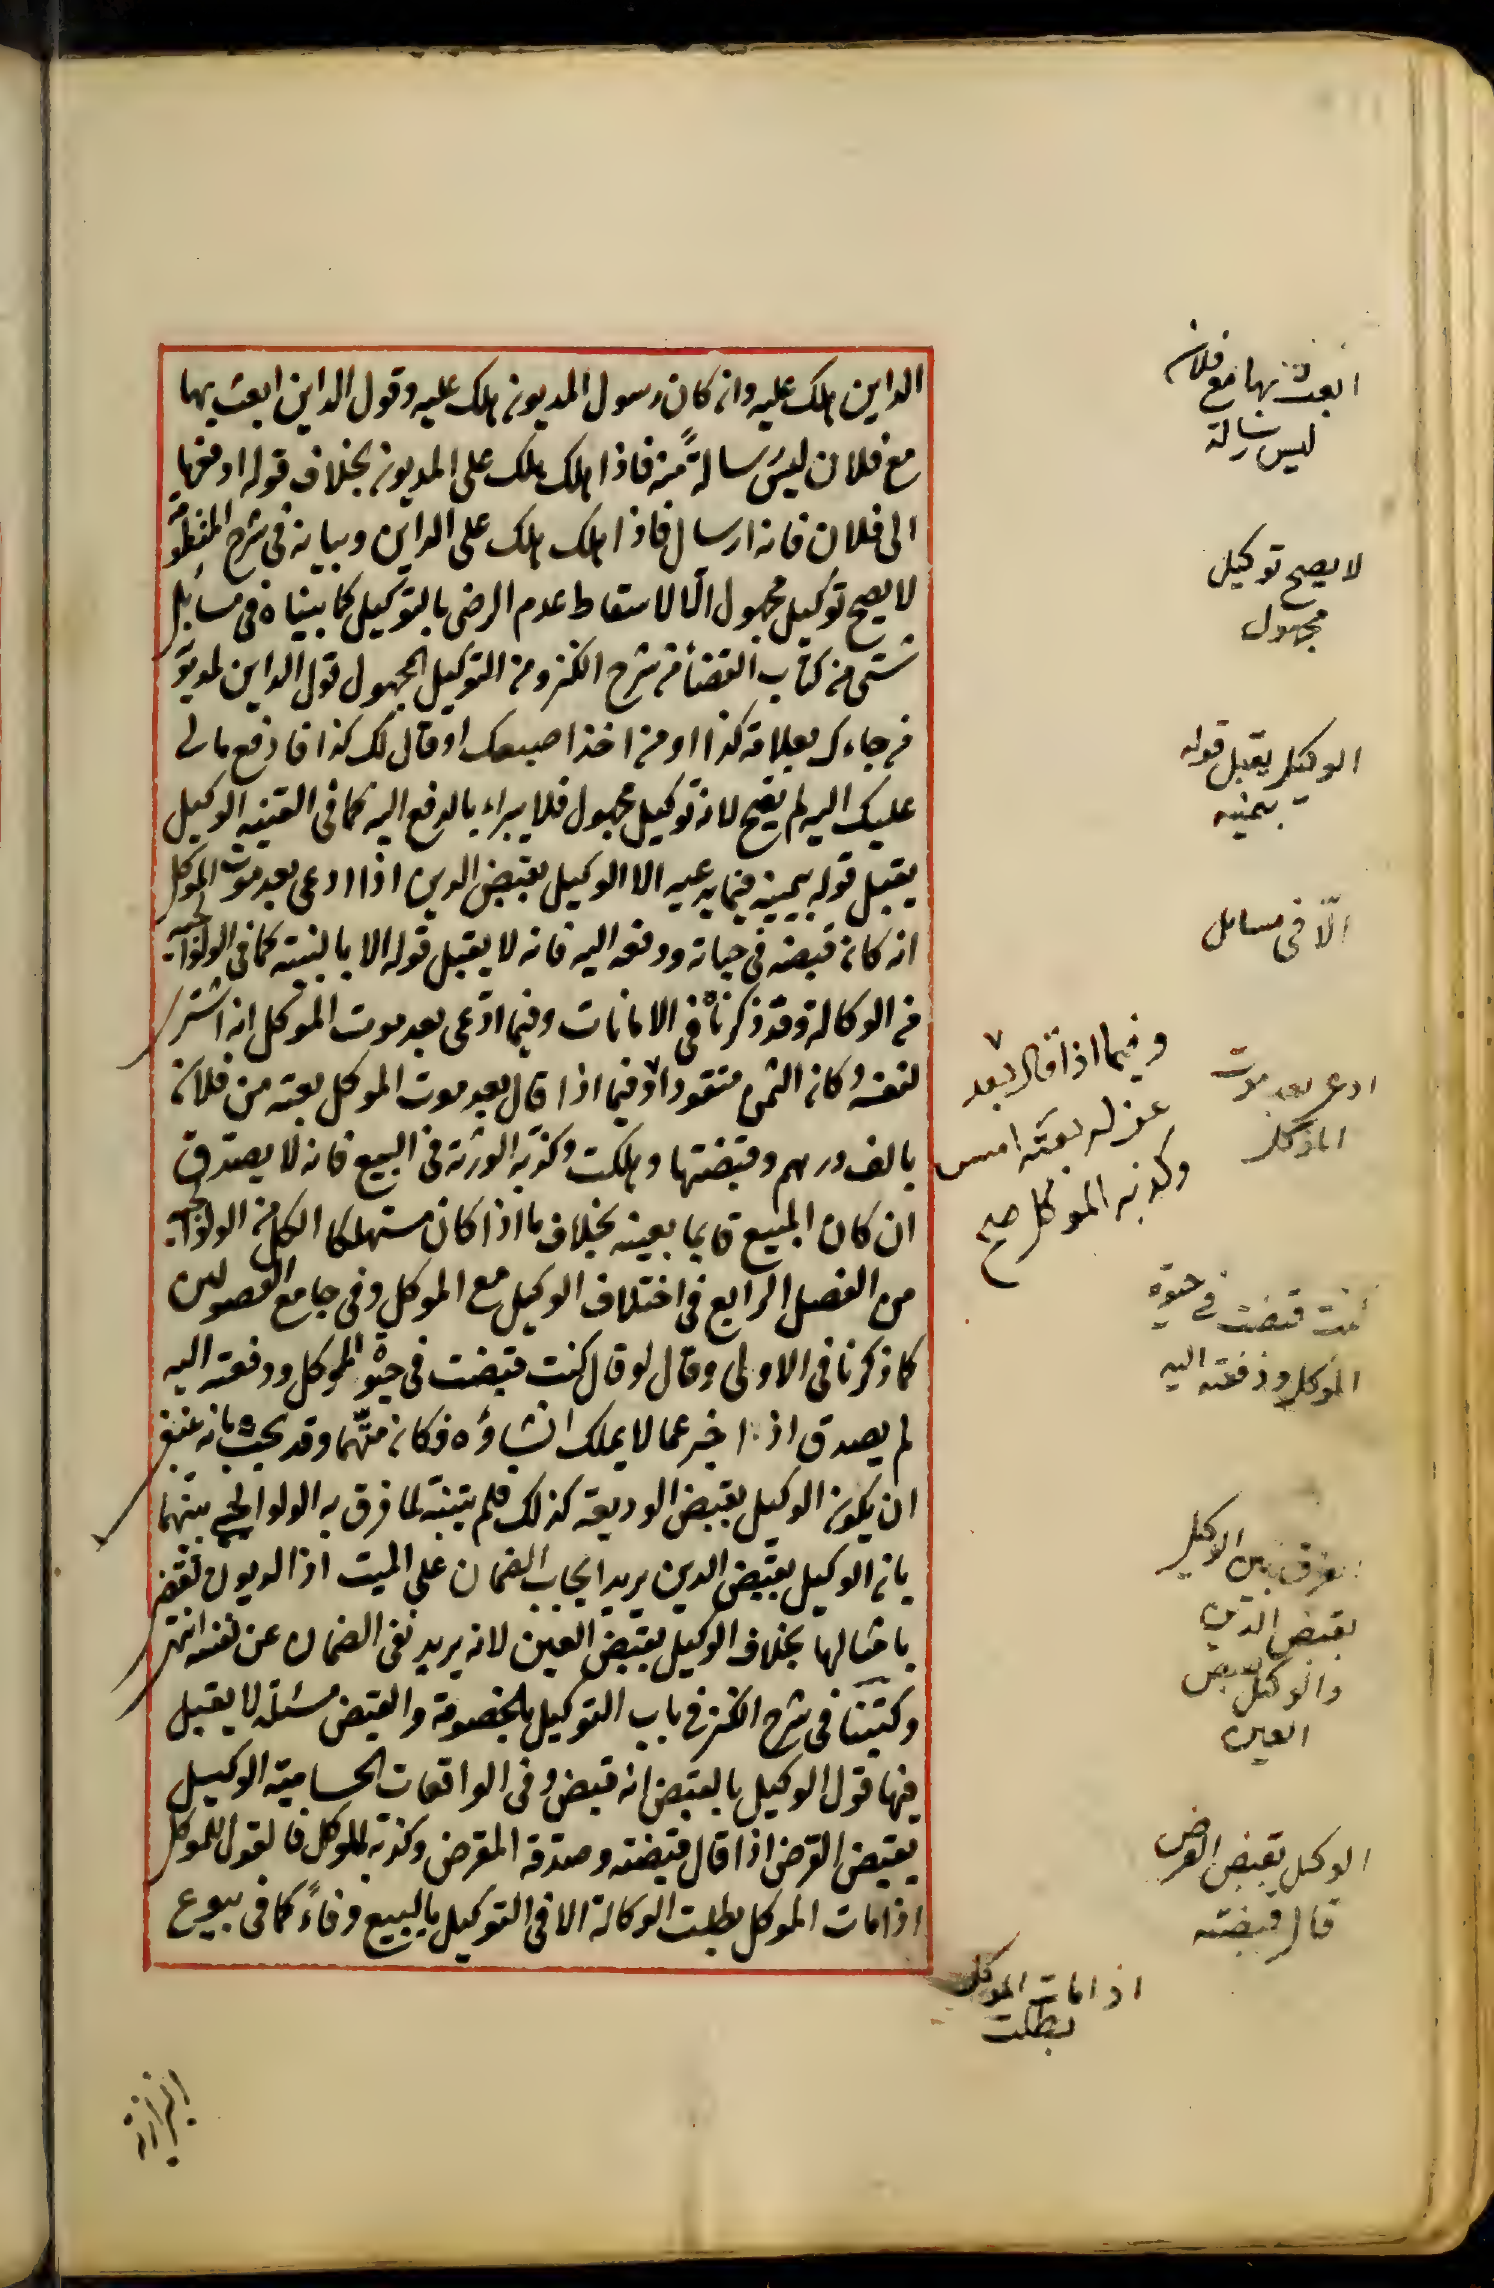 الداين هلك عليه وان كان رسول المديون هلك عليه وقول الداين ابعث بها
مع فلان ليس رسالة منه فاذا هلك هلك على المديون بخلاف قوله ادفعها
الى فلان فانه ارسال فاذا هلك هلك على الداين وبيانه فى شرح المنظومة
لا يصح توكيل مجهول الا لاسقاط عدم الرضى بالتوكيل كما بيناه فى مسائل
شتى من كتاب القضأ من شرح الكنز ومن التوكيل المجهول قول الداين لمديونه
من جاءك بعلامة كذا او من اخذ اصبعك او قال لك كذا فادفع مالى
عليك اليه لم يصح لانه توكيل مجهول فلا يبراء بالدفع اليه كما فى القنيه الوكيل
يقبل قوله بيمينه فيما يدعيه الا الوكيل بقبض الدين اذا ادعى بعد موت الموكل
انه كان قبضه فى حياته ودفعه اليه فانه لا يقبل قوله الا بالبينه كما فى الولوالجيه
من الوكالة وقد ذكرناه فى الامانات وفيما ادعى بعد موت الموكل انه اشترى
لنفسه وكان الثمن منقودا وفيما اذا قال بعد موت الموكل بعته من فلان
بالف درهم وقبضتها وهلكت وكذبه الورثة فى البيع فانه لا يصدق
ان كان المبيع قايما بعينه بخلاف ما اذا كان مستهلكا الكل من الولوالجيه
من الفصل الرابع فى اختلاف الوكيل مع الموكل وفى جامع الفصولين
كما ذكرنا فى الاولى وقال لو قال كنت قبضت فى حيوة الموكل ودفعته اليه
لم يصدق اذ اخبر عما لا يملك انشاؤه فكان متهما وقد بحث بانه ينبغى
ان يكون الوكيل بقبض الوديعة كذلك فلم يتنبه لما فرق به الولوالجى بينهما
بان الوكيل بقبض الدين يريد ايجاب الضمان على الميت اذ الديون تقضى
بامثالها بخلاف الوكيل بقبض العين لانه يريد نفى الضمان عن نفسه انتهى
وكتبنا فى شرح الكنز فى باب التوكيل بالخصومة والقبض مسئلة لا يقبل
فيها قول الوكيل بالقبض انه قبض وفى الواقعات الحسامية الوكيل
بقبض القرض اذا قال قبضته وصدقه المقرض وكذبه الموكل فالقول للموكل
اذا مات الموكل بطلت الوكالة الا فى التوكيل بالبيع وفاءً كما فى بيوع
ابعث بها مع فلان
ليس رسالة
لا يصح توكيل
مجهول
الوكيل يقبل قوله
بيمينه
الّا فى مسايل
ادعى بعد موت
الموكل
وفيما اذا قال بعد
عزله بعته امس
وكذبه الموكل صح
كنت قبضت فى حيوة
الموكل ودفعته اليه
يفرق بين الوكيل
بقبض الدين
والوكيل بقبض
العين
الوكيل بقبض القرض
قال قبضته
اذا مات الموكل
بطلت
البزازية